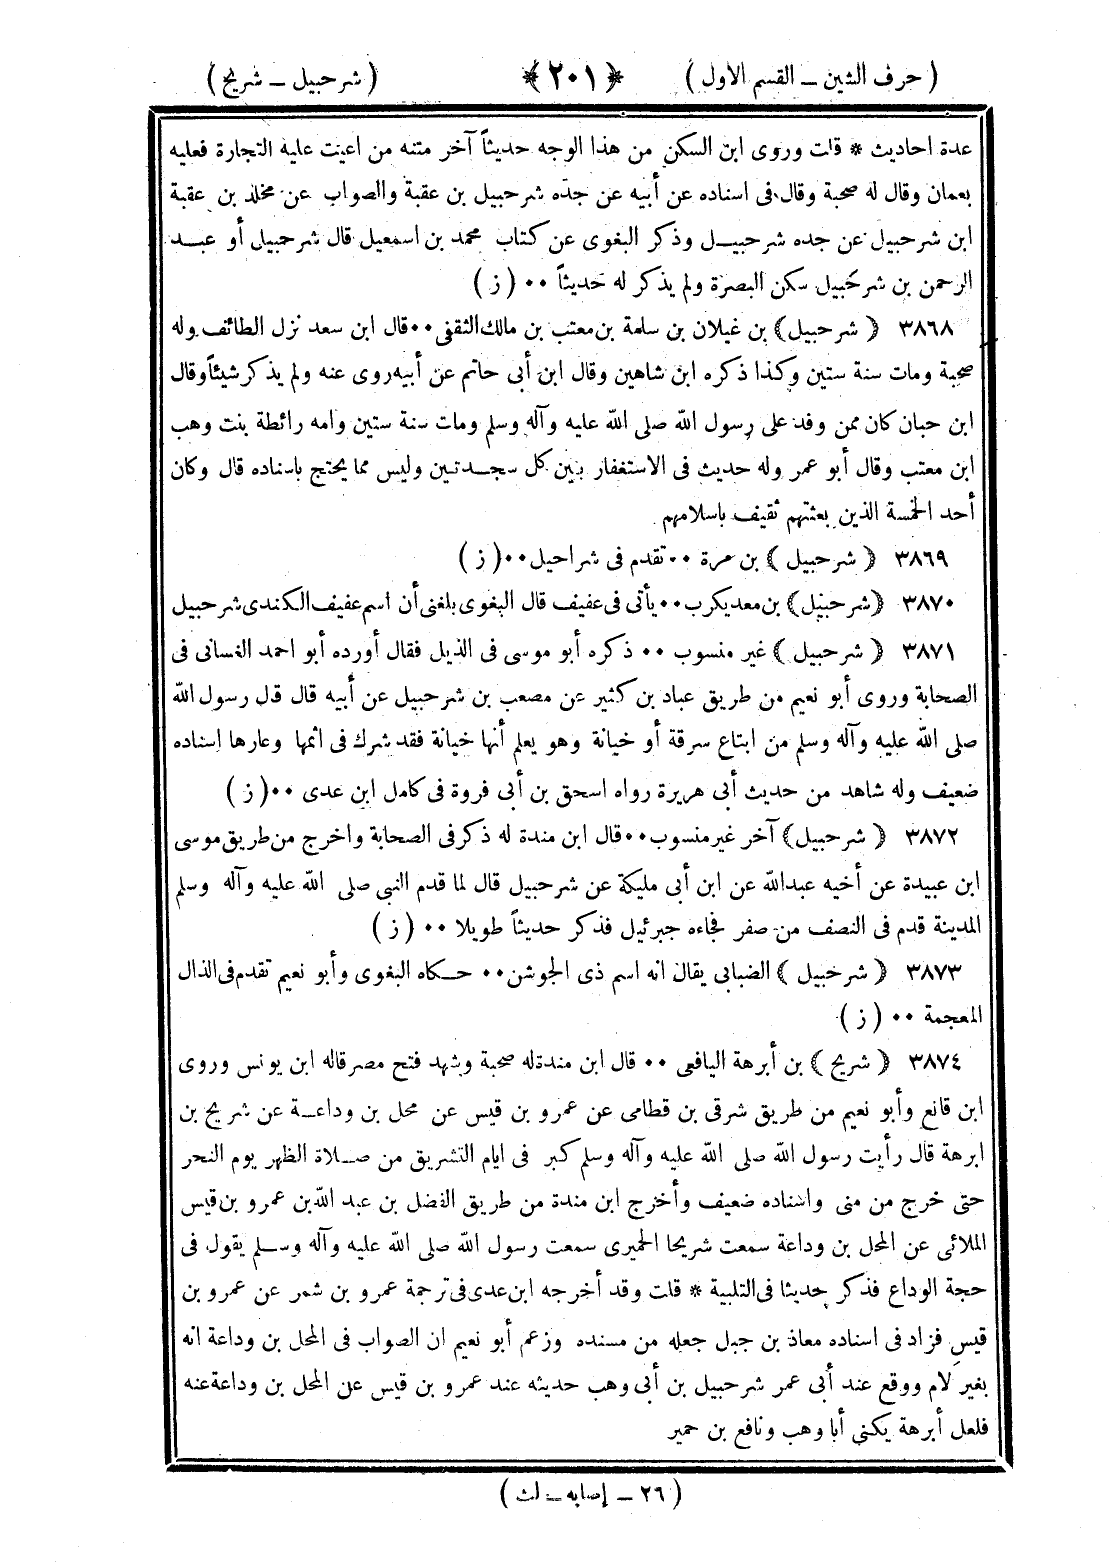 ( حرف الشين ـ القسم الأول )
﴿ ٢٠١ ﴾
( شرحبيل ـ شريح )
عدة احاديث * قلت وروى ابن السكن من هذا الوجه حديثاً آخر متنه من اعيت عليه التجارة فعليه
بعمان وقال له صحبة وقال فى اسناده عن أبيه عن جده شرحبيل بن عقبة والصواب عن مخلد بن عقبة
ابن شرحبيل عن جده شرحبيل وذكر البغوى عن كتاب محمد بن اسمعيل قال شرحبيل أو عبد
الرحمن بن شرحبيل سكن البصرة ولم يذكر له حديثاً ٠٠ ( ز )
٣٨٦٨ ﴿ شرحبيل ﴾ بن غيلان بن سلمة بن معتب بن مالك الثقفى ٠٠ قال ابن سعد نزل الطائف وله
صحبة ومات سنة ستين وكذا ذكره ابن شاهين وقال ابن أبى حاتم عن أبيه روى عنه ولم يذكر شيئاً وقال
ابن حبان كان ممن وفد على رسول الله صلى الله عليه وآله وسلم ومات سنة ستين وامه رائطة بنت وهب
ابن معتب وقال أبو عمر وله حديث فى الاستغفار بين كل سجدتين وليس مما يحتج باسناده قال وكان
أحد الخمسة الذين بعثتهم ثقيف باسلامهم
٣٨٦٩ ﴿ شرحبيل ﴾ بن مرة ٠٠ تقدم فى شراحيل ٠٠ ( ز )
٣٨٧٠ ﴿ شرحبيل ﴾ بن معديكرب ٠٠ يأتى فى عفيف قال البغوى بلغنى أن اسم عفيف الكندى شرحبيل
٣٨٧١ ﴿ شرحبيل ﴾ غير منسوب ٠٠ ذكره أبو موسى فى الذيل فقال أورده أبو احمد الغسانى فى
الصحابة وروى أبو نعيم من طريق عباد بن كثير عن مصعب بن شرحبيل عن أبيه قال قل رسول الله
صلى الله عليه وآله وسلم من ابتاع سرقة أو خيانة وهو يعلم أنها خيانة فقد شرك فى اثمها وعارها إسناده
ضعيف وله شاهد من حديث أبى هريرة رواه اسحق بن أبى فروة فى كامل ابن عدى ٠٠ ( ز )
٣٨٧٢ ﴿ شرحبيل ﴾ آخر غير منسوب ٠٠ قال ابن مندة له ذكر فى الصحابة واخرج من طريق موسى
ابن عبيدة عن أخيه عبدالله عن ابن أبى مليكة عن شرحبيل قال لما قدم النبى صلى الله عليه وآله وسلم
المدينة قدم فى النصف من صفر فجاءه جبرئيل فذكر حديثاً طويلا ٠٠ ( ز )
٣٨٧٣ ﴿ شرحبيل ﴾ الضبابى يقال انه اسم ذى الجوشن ٠٠ حكاه البغوى وأبو نعيم تقدم فى الذال
المعجمة ٠٠ ( ز )
٣٨٧٤ ﴿ شريح ﴾ بن أبرهة اليافعى ٠٠ قال ابن مندة له صحبة وشهد فتح مصر قاله ابن يونس وروى
ابن قانع وأبو نعيم من طريق شرقى بن قطامى عن عمرو بن قيس عن محل بن وداعة عن شريح بن
ابرهة قال رأيت رسول الله صلى الله عليه وآله وسلم كبر فى ايام التشريق من صلاة الظهر يوم النحر
حتى خرج من منى واسناده ضعيف وأخرج ابن مندة من طريق الفضل بن عبد الله بن عمرو بن قيس
الملائى عن المحل بن وداعة سمعت شريحا الحميرى سمعت رسول الله صلى الله عليه وآله وسلم يقول فى
حجة الوداع فذكر حديثا فى التلبية * قلت وقد أخرجه ابن عدى فى ترجمة عمرو بن شمر عن عمرو بن
قيس فزاد فى اسناده معاذ بن جبل جعله من مسنده وزعم أبو نعيم ان الصواب فى المحل بن وداعة انه
بغير لام ووقع عند أبى عمر شرحبيل بن أبى وهب حديثه عند عمرو بن قيس عن المحل بن وداعة عنه
فلعل أبرهة يكنى أبا وهب ونافع بن حمير
( ٢٦ ـ إصابه ـ لث )